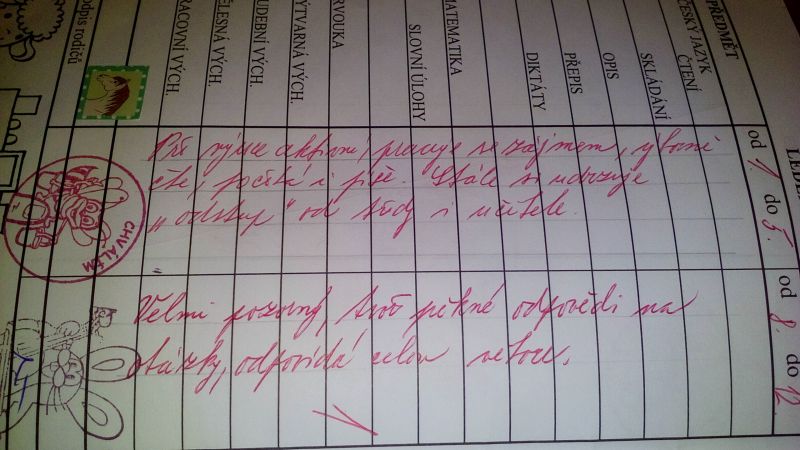 LEDE
PŘEDMĚT
od 1. do 5.
od 8. do 12.
ČESKÝ JAZYK
ČTENÍ
SKLÁDÁNÍ
OPIS
PŘEPIS
DIKTÁTY
SLOVNÍ ÚLOHY
MATEMATIKA
RVOUKA
ÝTVARNÁ VÝCH.
UDEBNÍ VÝCH.
ĚLESNÁ VÝCH.
RACOVNÍ VÝCH.
odpis rodičů
Při výuce aktivní, pracuje se zájmem, výborně
čte, počítá i píše. Stále si udržuje
„odstup" od třídy i učitele.
CHVÁLÍM
Velmi pozorný, tvoří pěkné odpovědi na
otázky, odpovídá celou větou.